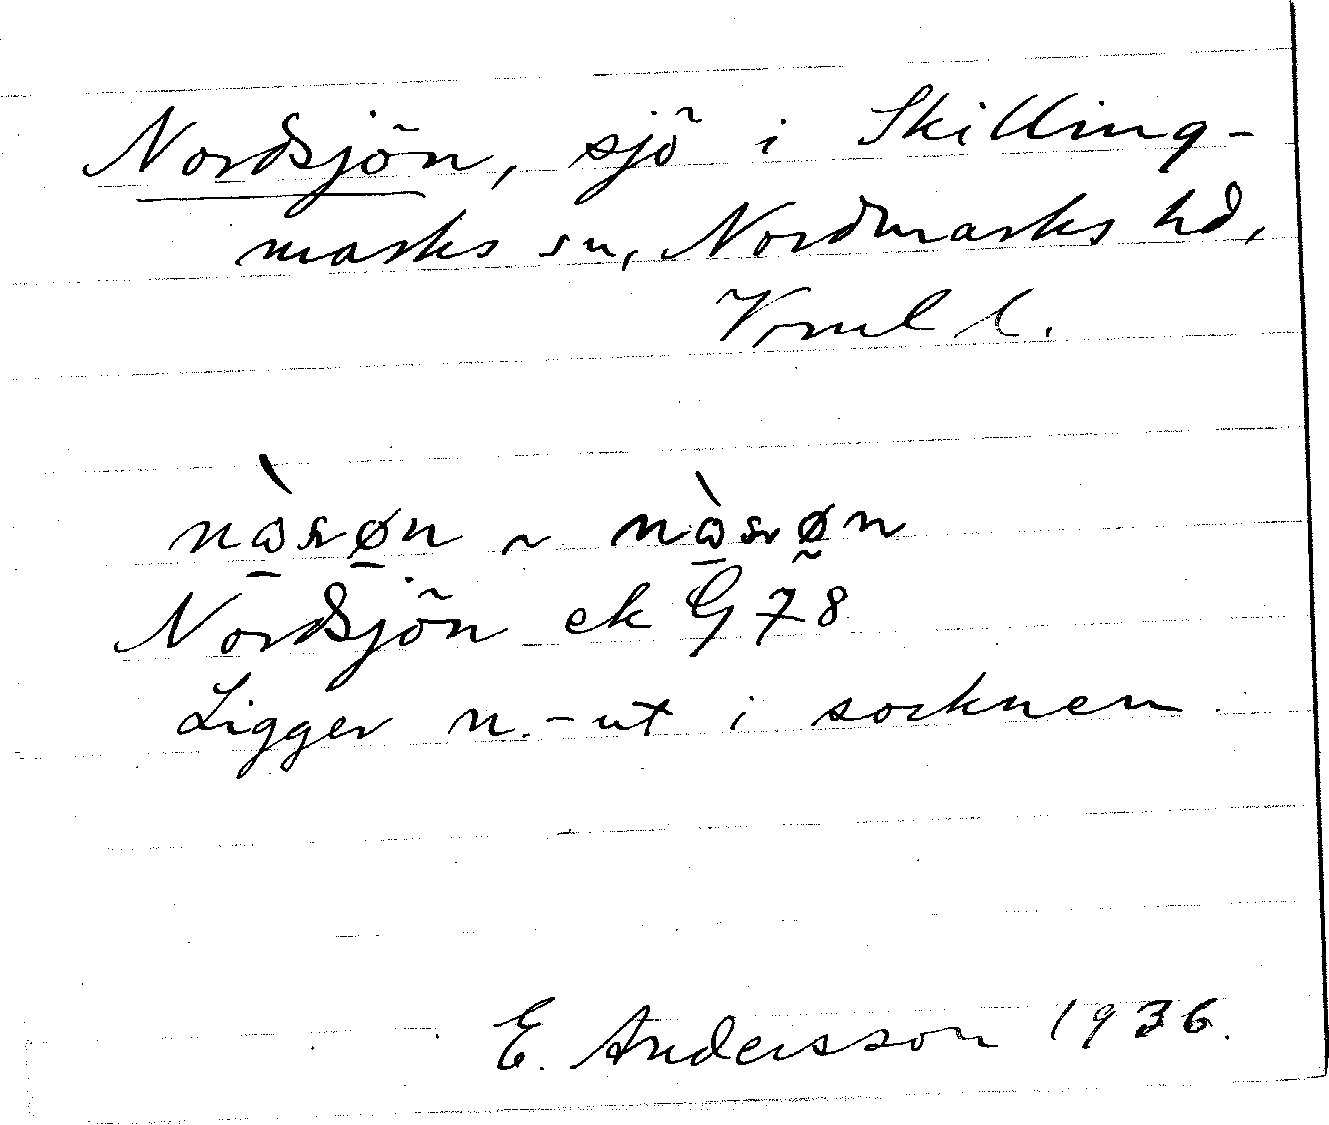 Nordsjön, sjö i Skilling-
marks sn, Nordmarks hd,
Vrml l.
Nordsjön ek G 78
Ligger n.-ut i socknen
E. Andersson 1936.